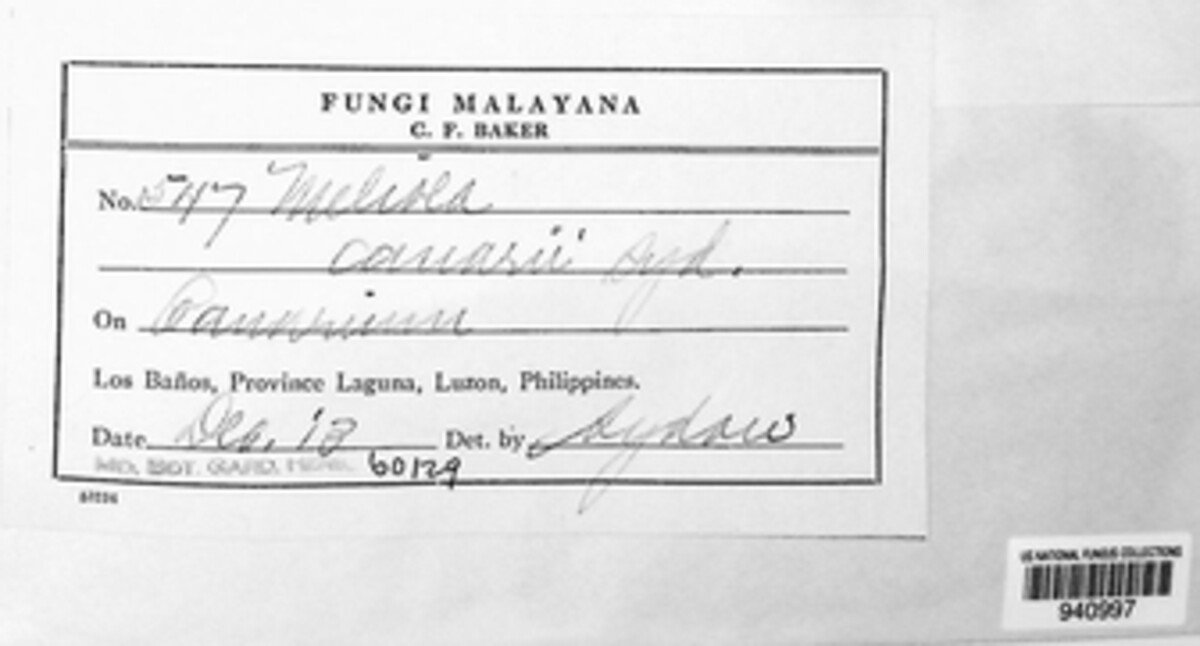 FUNGI MALAYANA
C. F. BAKER
No. 547 Meliola
canarii Syd.
On Canarium
Los Baños, Province Laguna, Luzon, Philippines.
Date Dec. '13 Det. by Sydow
MO. BOT. GARD. HERB. 60129
US NATIONAL FUNGUS COLLECTIONS
940997